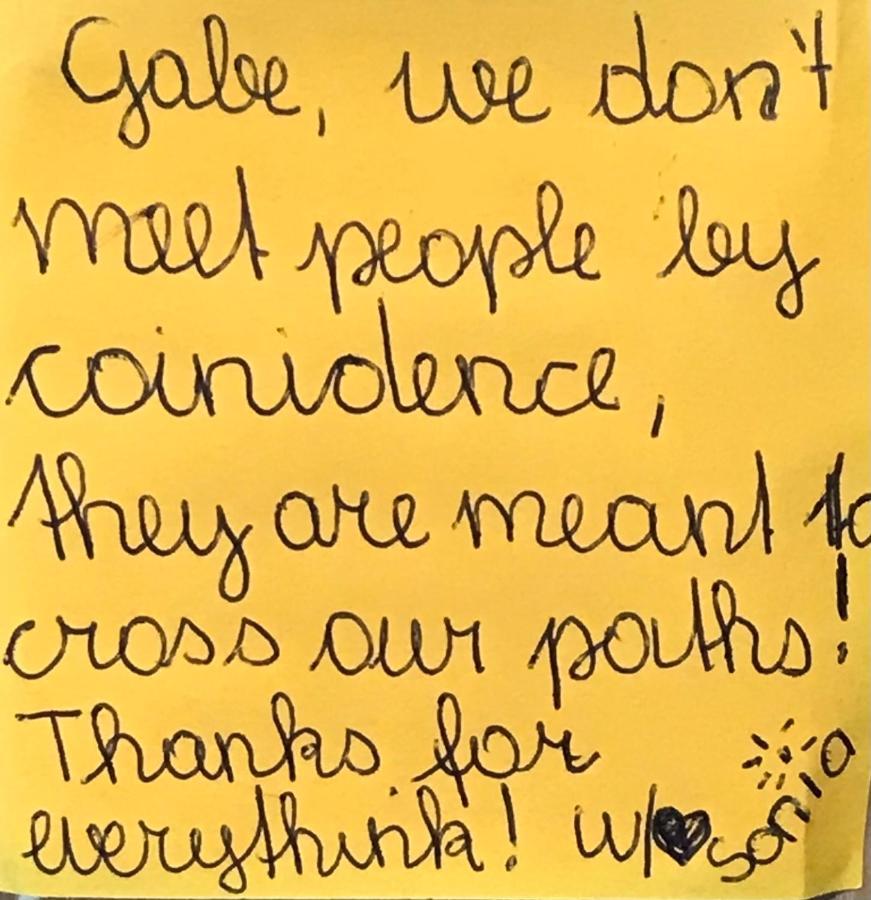 Gabe, we don't
meet people by
coinidence,
they are meant to
cross our paths!
Thanks for
everythink! w/♥ sonia